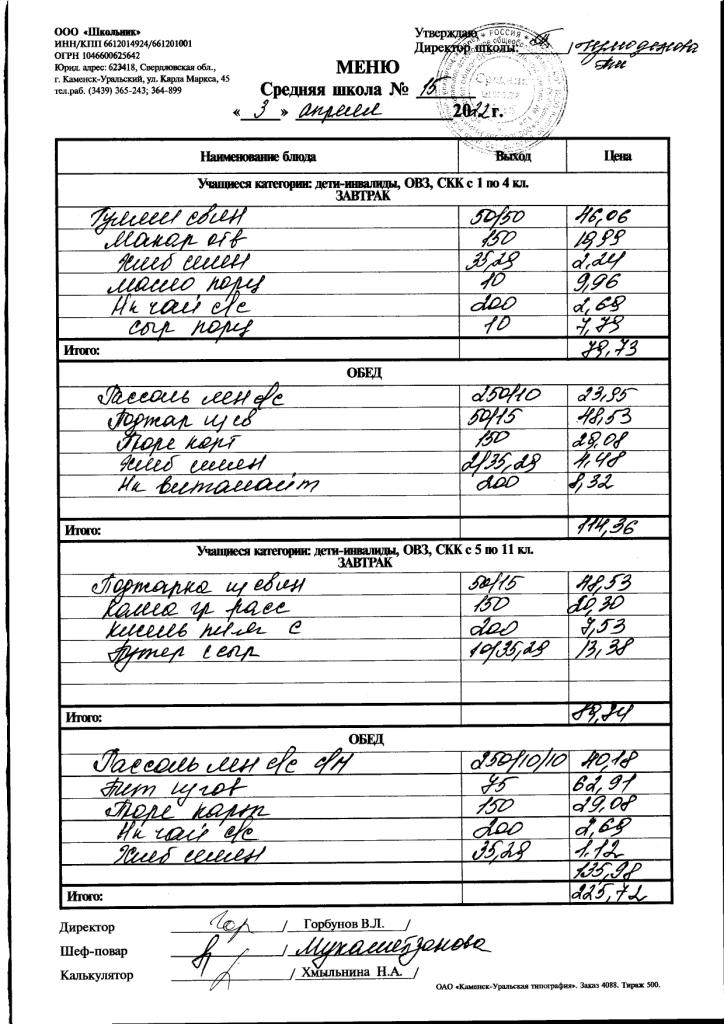 ООО «Школьник»
ИНН/КПП 6612014924/661201001
ОГРН 1046600625642
Юрид. адрес: 623418, Свердловская обл.,
г. Каменск-Уральский, ул. Карла Маркса, 45
тел.раб. (3439) 365-243; 364-899
Утверждаю
Директор школы:
МЕНЮ
Средняя школа № 15
« 3 » апреля 2022 г.
Наименование блюда Выход Цена
Учащиеся категории: дети-инвалиды, ОВЗ, СКК с 1 по 4 кл.
ЗАВТРАК
Гуляш свин 50/50 46,06
Макар отв 150
Хлеб 35,29 2,24
масло порц 10 9,96
Нк чай с/с 200 2,69
сыр порц 10 7,79
Итого: 79,73
ОБЕД
Рассоль лен с/с 250/10 23,95
Поджар из св 50/15 48,53
Пюре карт 150 29,08
Хлеб 2/35,29 4,48
Нк витамайт 200 8,32
Итого: 114,36
Учащиеся категории: дети-инвалиды, ОВЗ, СКК с 5 по 11 кл.
ЗАВТРАК
Поджарка из свин 50/15 48,53
Каша гр расс 150 20,30
Кисель С 200 7,53
Бутер с сыр 10/35,29 13,38
Итого:
ОБЕД
Рассоль лен с/с 250/10/10 40,18
из гов 75 62,91
Пюре карт 150 29,08
Нк чай с/с 200 2,69
Хлеб 35,29 1,12
135,98
Итого: 225,72
Директор / Горбунов В.Л. /
Шеф-повар / Мухаметзанова
Калькулятор / Хмыльнина Н.А. /
ОАО «Каменск-Уральская типография». Заказ 4088. Тираж 500.